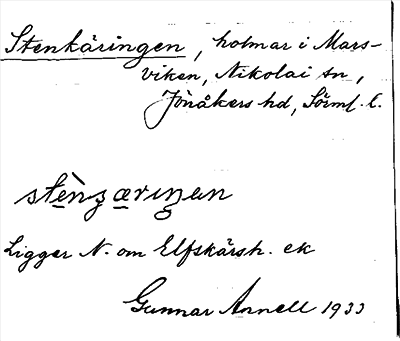 Stenkäringen, holmar i Mars-
viken, Nikolai sn,
Jönåkers hd, Sörml. l.
stèn̥ʒæriŋen
Ligger N. om Elfskärsh. ek
Gunnar Annell 1933